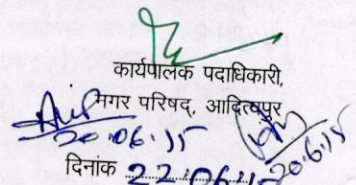 कार्यपालक पदाधिकारी,
नगर परिषद्, आदित्यपुर
20.06.15
20.6.15
दिनांक 22.06.1